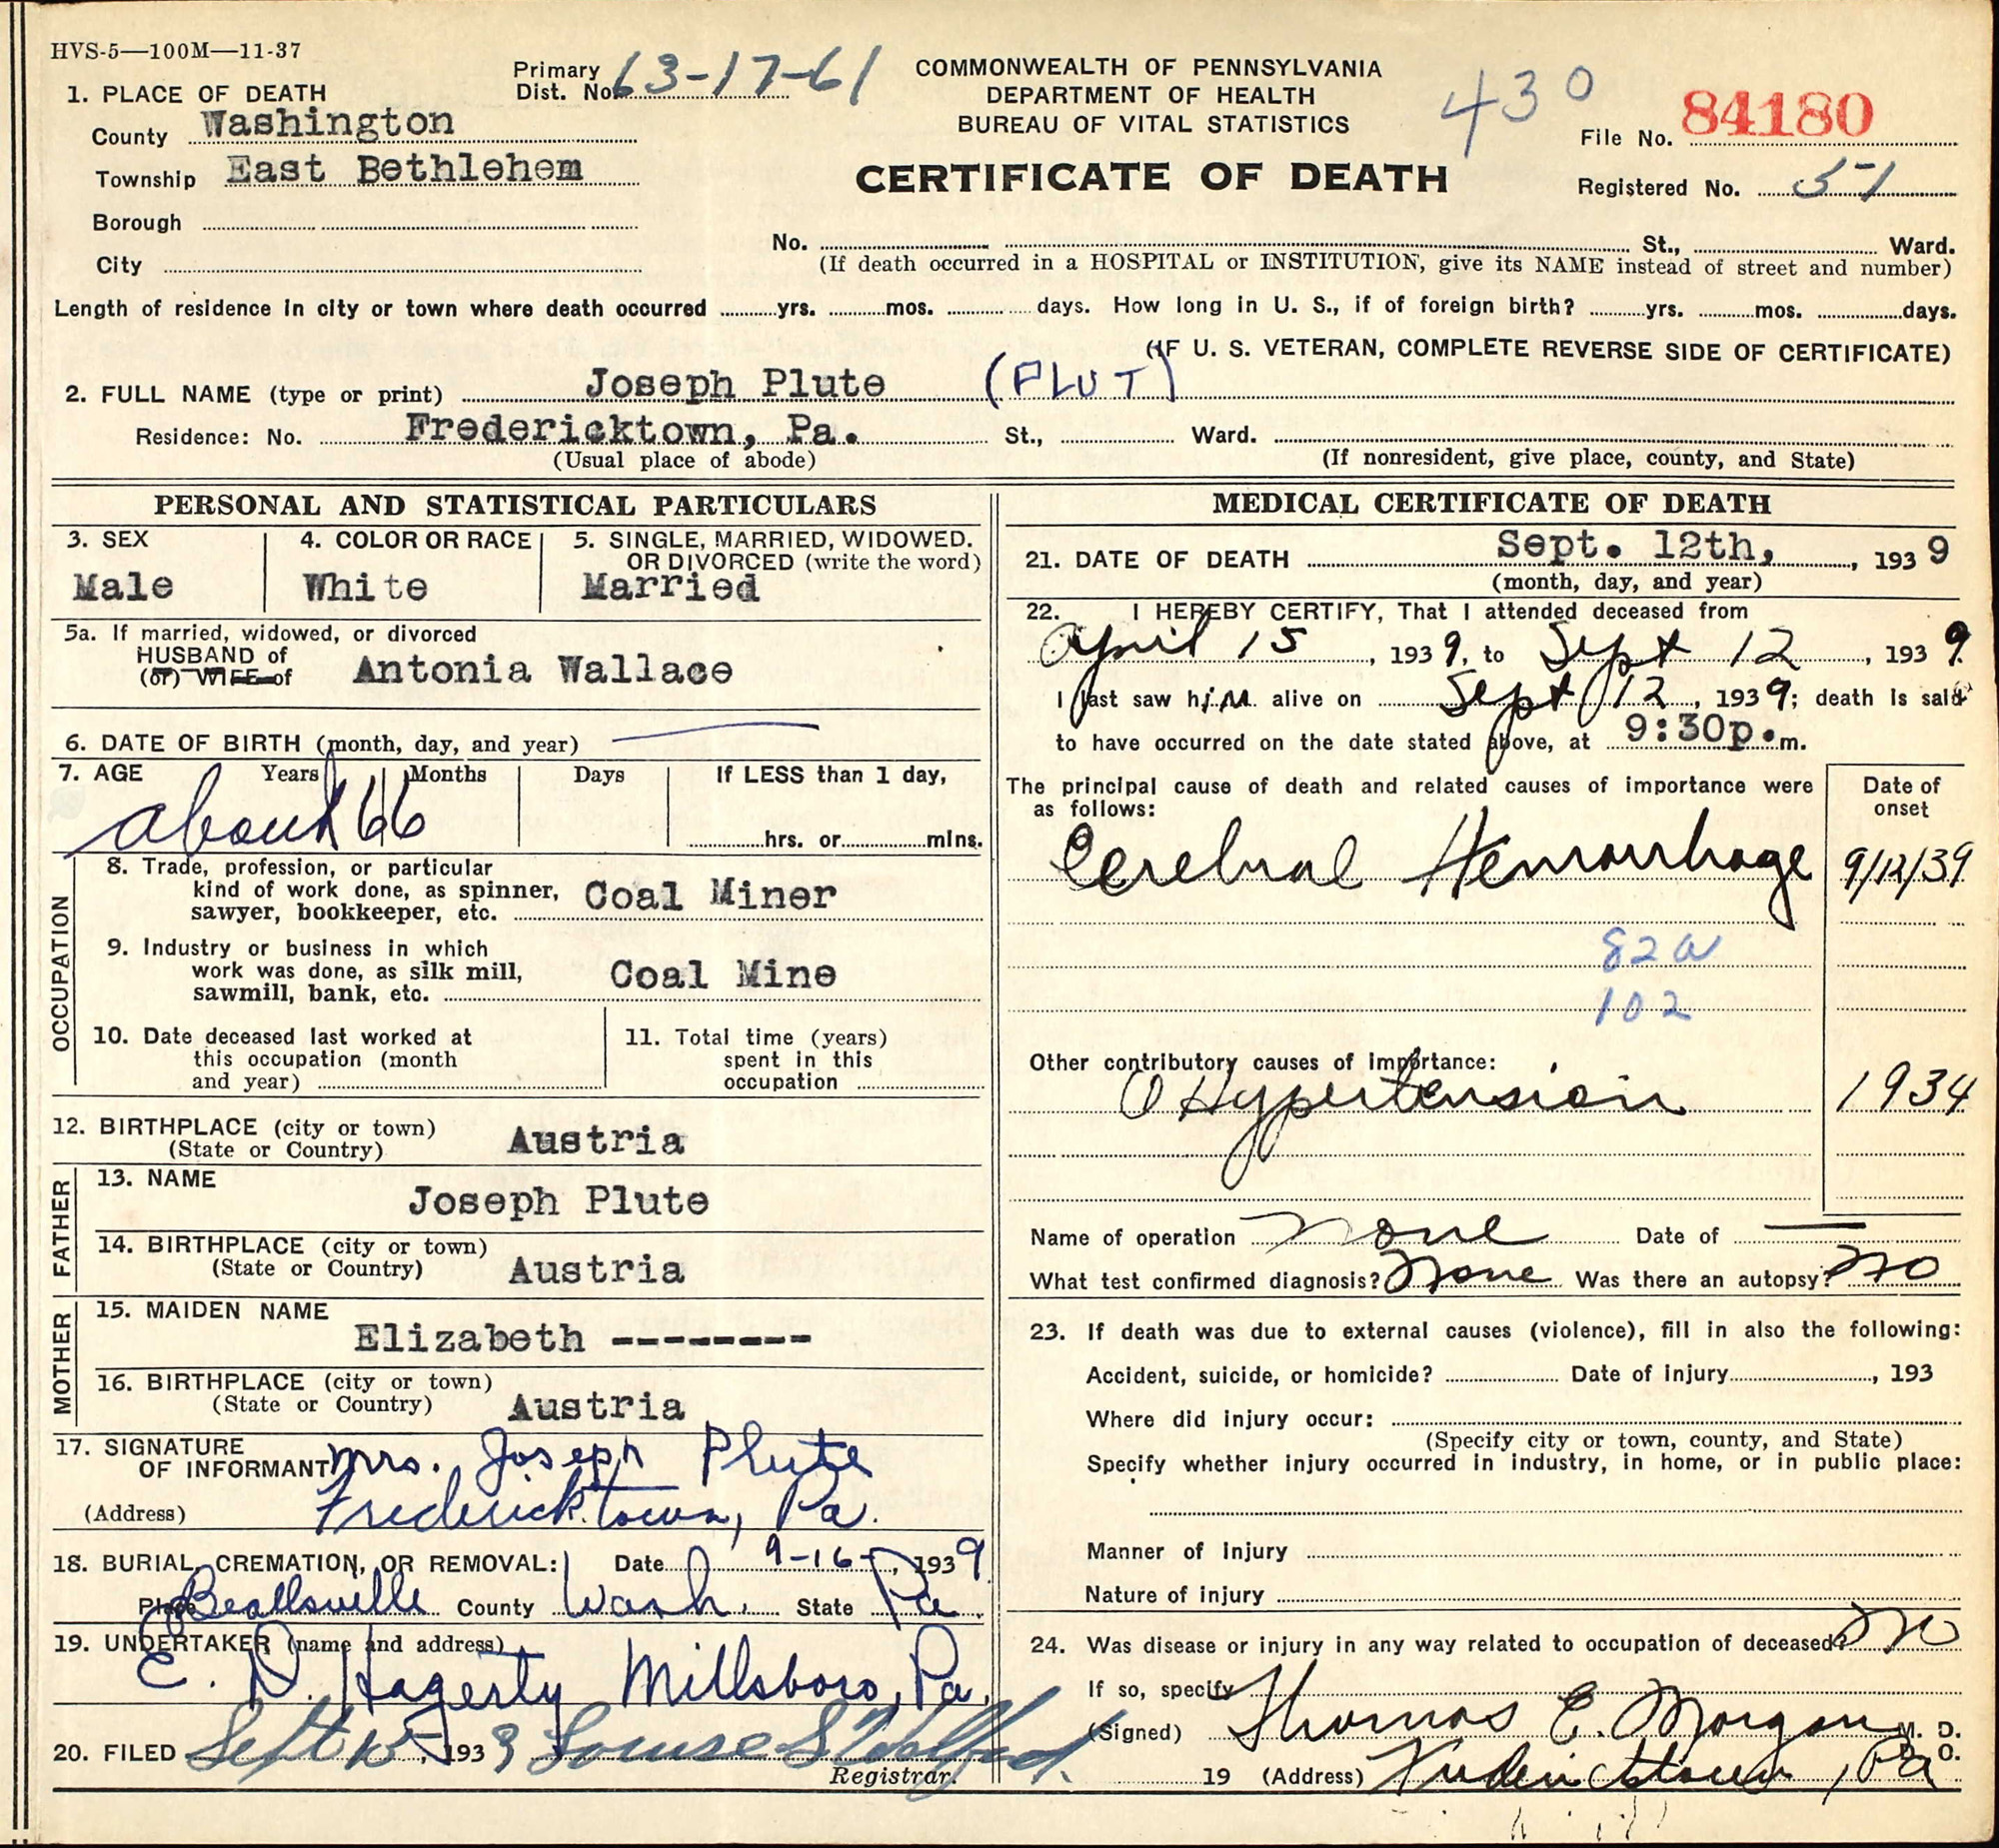 HVS-5—100M—11-37
Primary
Dist. No. 63-17-61
COMMONWEALTH OF PENNSYLVANIA
DEPARTMENT OF HEALTH
BUREAU OF VITAL STATISTICS
CERTIFICATE OF DEATH
430
File No. 84180
Registered No. 51
1. PLACE OF DEATH
County Washington
Township East Bethlehem
Borough
City
No. St., Ward.
(If death occurred in a HOSPITAL or INSTITUTION, give its NAME instead of street and number)
Length of residence in city or town where death occurred yrs. mos. days. How long in U. S., if of foreign birth? yrs. mos. days.
(IF U. S. VETERAN, COMPLETE REVERSE SIDE OF CERTIFICATE)
2. FULL NAME (type or print) Joseph Plute (PLUT)
Residence: No. Fredericktown, Pa. St., Ward.
(Usual place of abode) (If nonresident, give place, county, and State)
PERSONAL AND STATISTICAL PARTICULARS
3. SEX
Male
4. COLOR OR RACE
White
5. SINGLE, MARRIED, WIDOWED.
OR DIVORCED (write the word)
Married
5a. If married, widowed, or divorced
HUSBAND of
(or) WIFE of Antonia Wallace
6. DATE OF BIRTH (month, day, and year)
7. AGE Years Months Days If LESS than 1 day,
about 66 hrs. or mins.
OCCUPATION
8. Trade, profession, or particular
kind of work done, as spinner,
sawyer, bookkeeper, etc. Coal Miner
9. Industry or business in which
work was done, as silk mill,
sawmill, bank, etc. Coal Mine
10. Date deceased last worked at
this occupation (month
and year)
11. Total time (years)
spent in this
occupation
12. BIRTHPLACE (city or town)
(State or Country) Austria
FATHER
13. NAME
Joseph Plute
14. BIRTHPLACE (city or town)
(State or Country) Austria
MOTHER
15. MAIDEN NAME
Elizabeth --------
16. BIRTHPLACE (city or town)
(State or Country) Austria
17. SIGNATURE
OF INFORMANT Mrs. Joseph Plute
(Address) Fredericktown, Pa.
18. BURIAL, CREMATION, OR REMOVAL: Date 9-16-, 1939
Place Beallsville County Wash. State Pa.
19. UNDERTAKER (name and address)
E. D. Hagerty Millsboro, Pa.
20. FILED Sept 15, 1939 Louise S
Registrar.
MEDICAL CERTIFICATE OF DEATH
21. DATE OF DEATH Sept. 12th, , 1939
(month, day, and year)
22. I HEREBY CERTIFY, That I attended deceased from
April 15, 1939, to Sept 12, 1939.
I last saw him alive on Sept 12, 1939; death is said
to have occurred on the date stated above, at 9:30p.m.
The principal cause of death and related causes of importance were
as follows:
Date of
onset
Cerebral Hemorrhage 9/12/39
82a
102
Other contributory causes of importance:
Hypertension 1934
Name of operation none Date of —
What test confirmed diagnosis? None Was there an autopsy? no
23. If death was due to external causes (violence), fill in also the following:
Accident, suicide, or homicide? Date of injury , 193
Where did injury occur:
(Specify city or town, county, and State)
Specify whether injury occurred in industry, in home, or in public place:
Manner of injury
Nature of injury
24. Was disease or injury in any way related to occupation of deceased? no
If so, specify
(Signed) Thomas E. Morgan M. D.
D. O.
19 (Address) Fredericktown, Pa